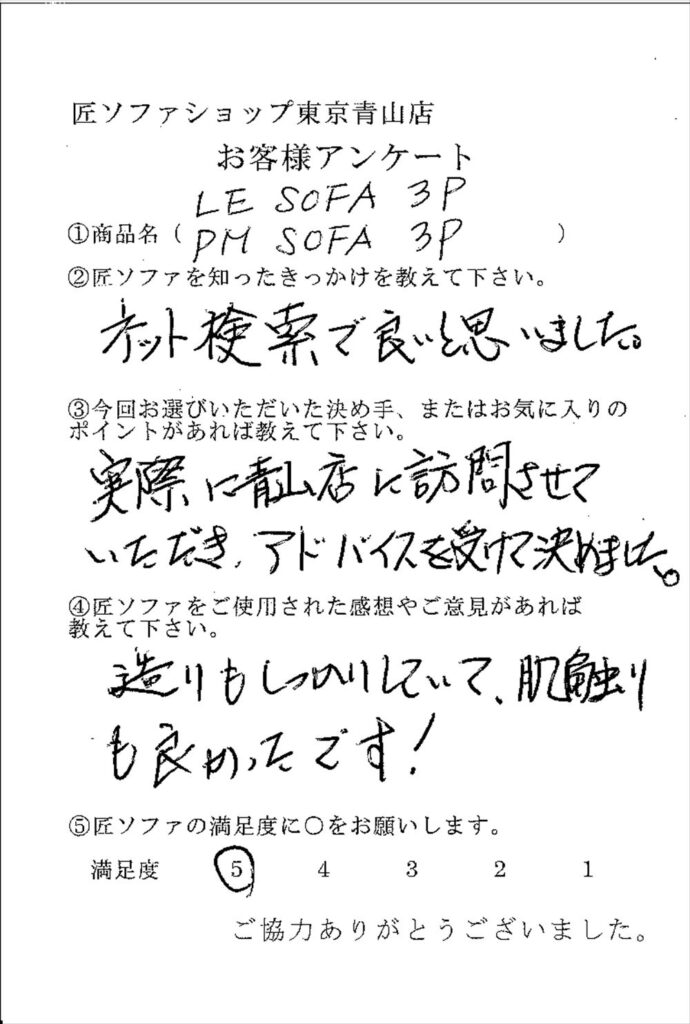 匠ソファショップ東京青山店
お客様アンケート
LE SOFA 3P
①商品名(PM SOFA 3P)
②匠ソファを知ったきっかけを教えて下さい。
ネット検索で良いと思いました。
③今回お選びいただいた決め手、またはお気に入りの
ポイントがあれば教えて下さい。
実際に青山店に訪問させて
いただき、アドバイスを受けて決めました。
④匠ソファをご使用された感想やご意見があれば
教えて下さい。
造りもしっかりしていて、肌触り
も良かったです!
⑤匠ソファの満足度に〇をお願いします。
満足度 5 4 3 2 1
ご協力ありがとうございました。